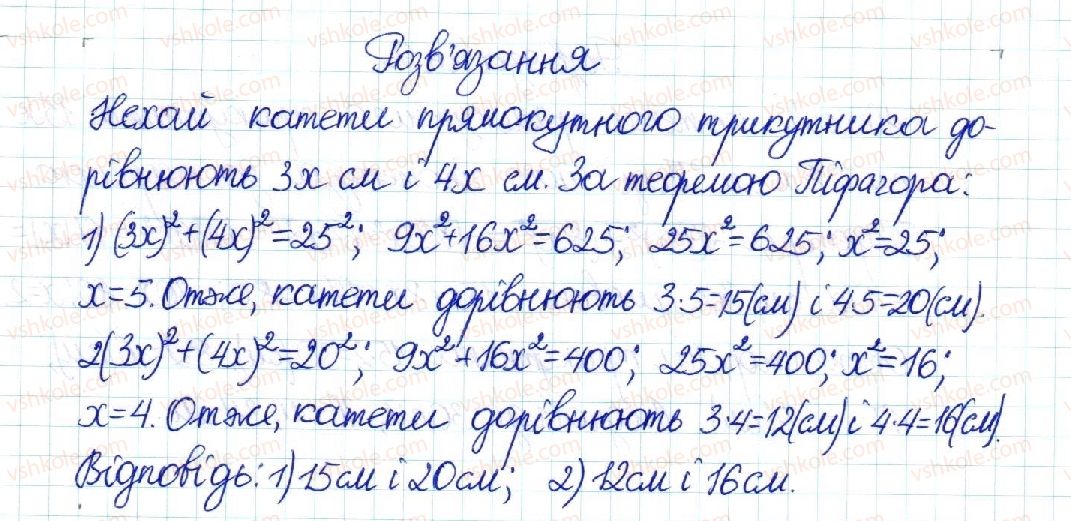 Розв'язання
Нехай катети прямокутного трикутника до-
рівнюють 3x см і 4x см. За теоремою Піфагора:
1) (3x)²+(4x)²=25²; 9x²+16x²=625; 25x²=625; x²=25;
x=5. Отже, катети дорівнюють 3·5=15(см) і 4·5=20(см).
2(3x)²+(4x)²=20²; 9x²+16x²=400; 25x²=400; x²=16;
x=4. Отже, катети дорівнюють 3·4=12(см) і 4·4=16(см).
Відповідь: 1) 15 см і 20 см; 2) 12 см і 16 см.